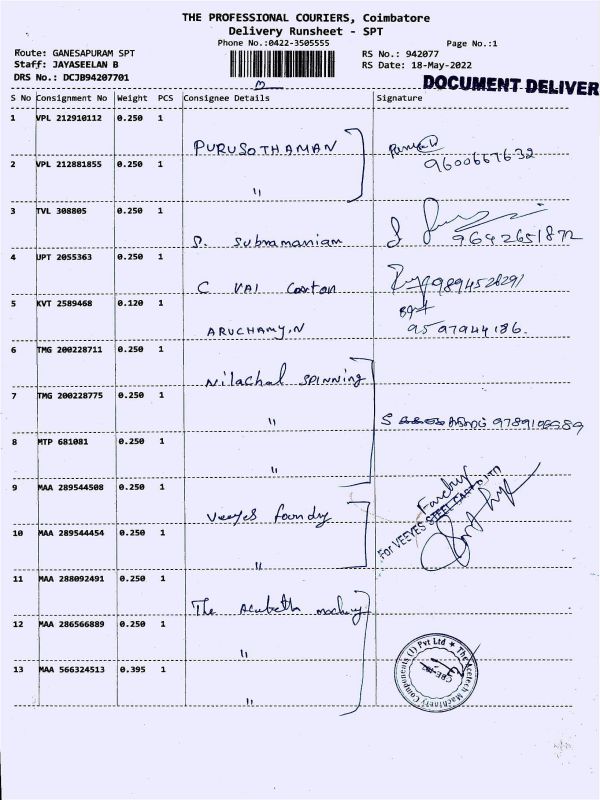 THE PROFESSIONAL COURIERS, Coimbatore
Delivery Runsheet - SPT
Phone No.:0422-3505555
Page No.:1
Route: GANESAPURAM SPT
RS No.: 942077
Staff: JAYASEELAN B
RS Date: 18-May-2022
DRS No.: DCJB94207701
DOCUMENT DELIVER
S No Consignment No Weight PCS Consignee Details Signature
1 VPL 212910112 0.250 1
PURUSOTHAMAN
9600667632
2 VPL 212881855 0.250 1
"
3 TVL 308805 0.250 1
S. Subramaniam
9642651872
4 UPT 2055363 0.250 1
C VAI Cotton
9894528291
5 KVT 2589468 0.120 1
ARUCHAMY,N
9597944186.
6 TMG 200228711 0.250 1
Nilachal SPINNING
7 TMG 200228775 0.250 1
"
S
8 MTP 681081 0.250 1
"
9 MAA 289544508 0.250 1
Veeyes foundry
For VEEYES STEEL CAST (P) LTD
10 MAA 289544454 0.250 1
"
11 MAA 288092491 0.250 1
The
12 MAA 286566889 0.250 1
"
13 MAA 566324513 0.395 1
"
The Acetech Machinery Components (I) Pvt Ltd